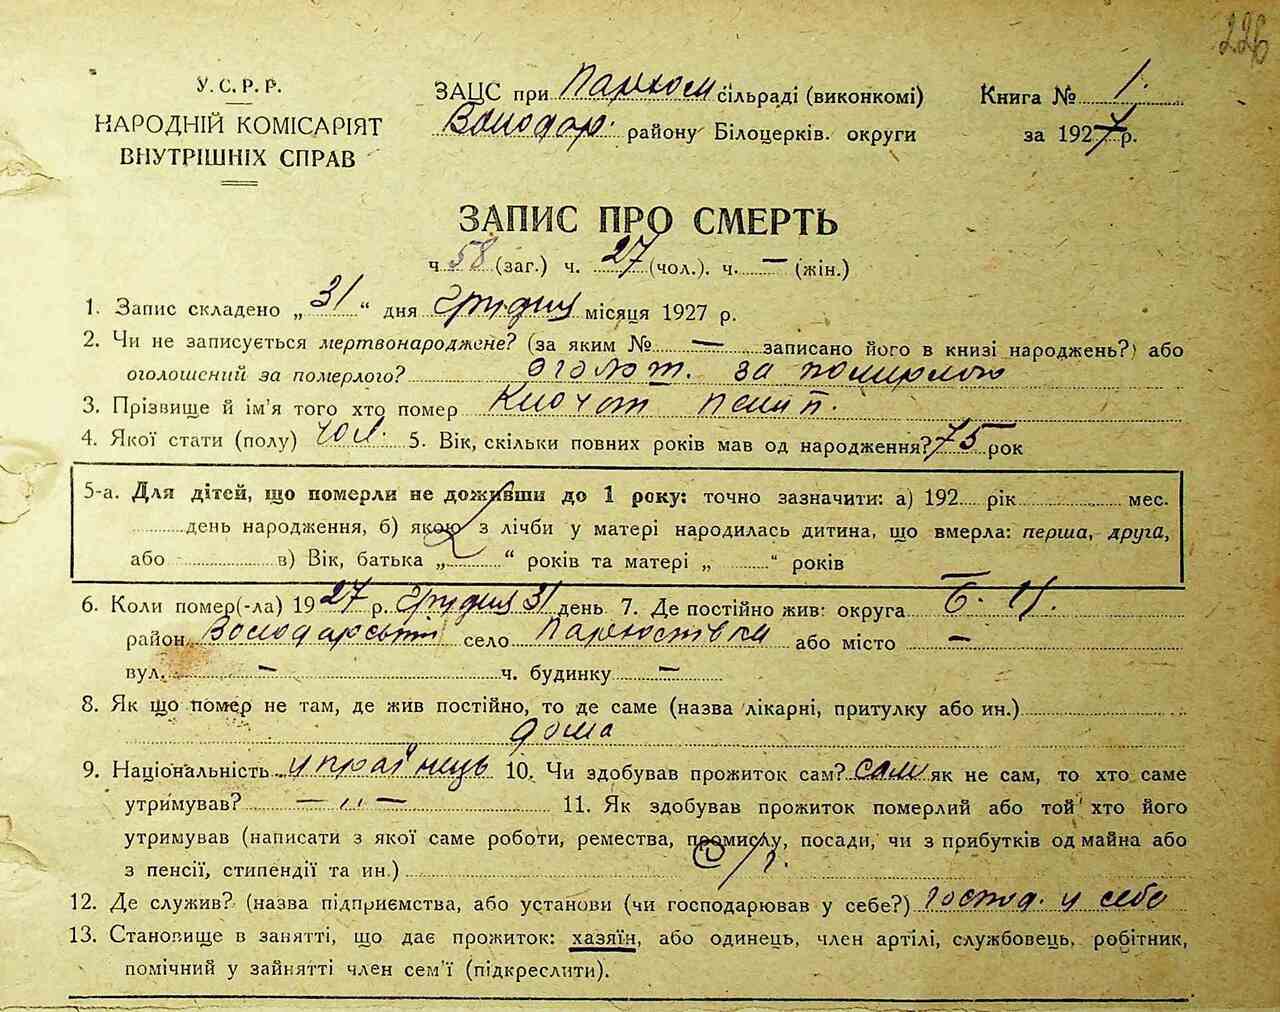 226
У. С. Р. Р.
НАРОДНІЙ КОМІСАРІЯТ
ВНУТРІШНІХ СПРАВ
ЗАЦС при Пархом сільраді (виконкомі)
Володар. району Білоцерків. округи
Книга № 1.
за 1927 р.
ЗАПИС ПРО СМЕРТЬ
ч 58 (заг.) ч. 27 (чол.). ч. — (жін.)
1. Запис складено „ 31 “ дня Грудня місяця 1927 р.
2. Чи не записується мертвонароджене? (за яким № — записано його в книзі народжень?) або
оголошений за померлого? за помирлого
3. Прізвище й ім'я того хто помер
4. Якої стати (полу) чол. 5. Вік, скільки повних років мав од народження? 75 рок
5-а. Для дітей, що померли не доживши до 1 року: точно зазначити: а) 192 рік мес.
день народження, б) якою з лічби у матері народилась дитина, що вмерла: перша, друга,
або в) Вік, батька „ “ років та матері „ “ років
6. Коли помер(-ла) 1927 р. Грудня 31 день 7. Де постійно жив: округа Б. Ц.
район Володарський село Пархомівка або місто —
вул. — ч. будинку —
8. Як що помер не там, де жив постійно, то де саме (назва лікарні, притулку або ин.)
дома
9. Національність українець 10. Чи здобував прожиток сам? сам як не сам, то хто саме
утримував? — „ — 11. Як здобував прожиток померлий або той хто його
утримував (написати з якої саме роботи, ремества, промислу, посади, чи з прибутків од майна або
з пенсії, стипендії та ин.)
12. Де служив? (назва підприємства, або установи (чи господарював у себе?) Господ. у себе
13. Становище в занятті, що дає прожиток: хазяїн, або одинець, член артілі, службовець, робітник,
помічний у зайнятті член сем'ї (підкреслити).